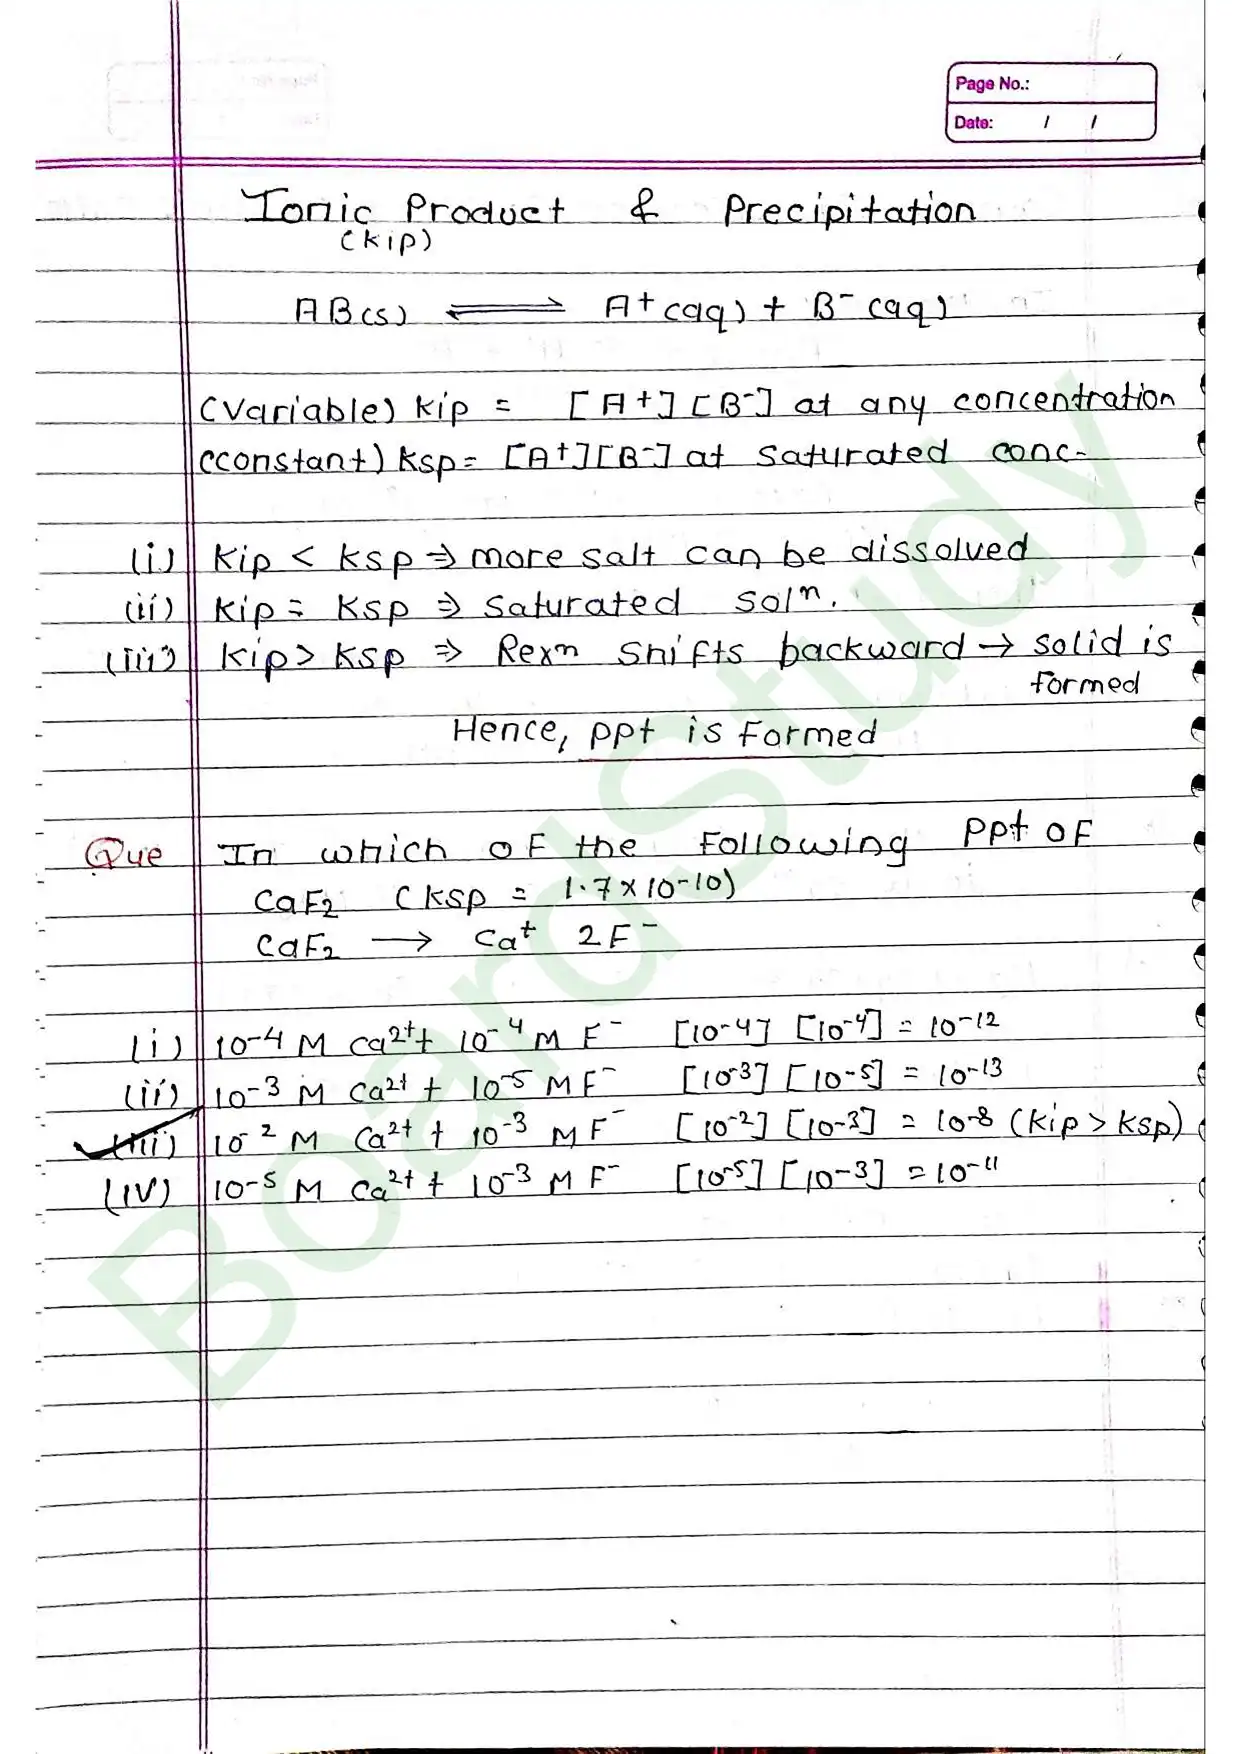 Page No.:
Date: / /
Ionic Product & Precipitation
(Kip)
AB(s) ⇌ A+ (aq) + B- (aq)
(Variable) Kip = [A+][B-] at any concentration
(constant) Ksp = [A+][B-] at saturated conc-
(i) Kip < Ksp ⇒ more salt can be dissolved
(ii) Kip = Ksp ⇒ saturated solⁿ.
(iii) Kip > Ksp ⇒ Rexn shifts backward → solid is
formed
Hence, ppt is formed
Que In which of the following ppt of
CaF₂ (Ksp = 1.7×10-10)
CaF₂ → Ca⁺ 2F⁻
(i) 10-4 M Ca²⁺+ 10⁻⁴ M F⁻ [10-4] [10⁻⁴] = 10-12
(ii) 10-3 M Ca²⁺ + 10-5 M F⁻ [10-3] [10-5] = 10-13
(iii) 10-2 M Ca²⁺ + 10-3 M F⁻ [10-2] [10-3] = 10-8 (Kip > Ksp)
(iv) 10-5 M Ca²⁺ + 10-3 M F⁻ [10-5] [10-3] = 10-11
BoardStudy